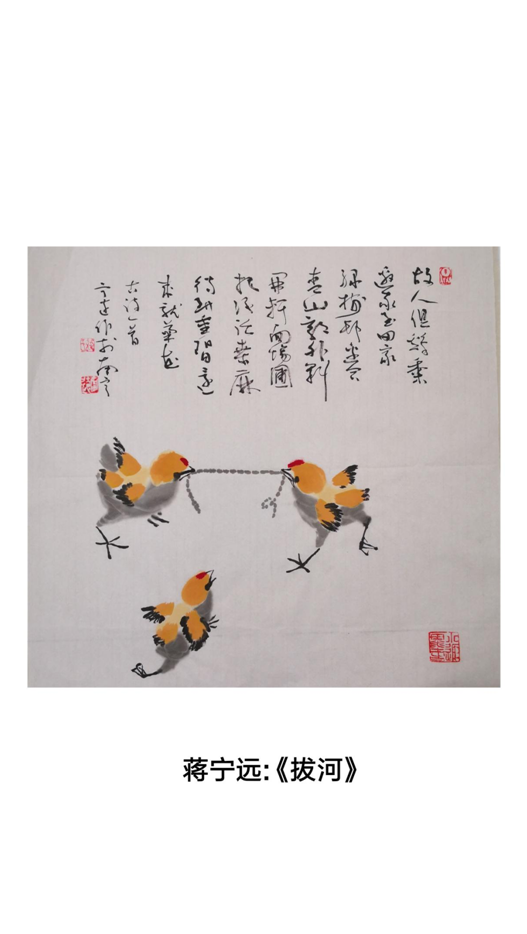 故人俱鸡黍
邀我至田家
绿树村边合
青山郭外斜
开轩面场圃
把酒话桑麻
待到重阳还
来就菊花
古诗一首
宁远作于南宁
蒋宁远:《拔河》